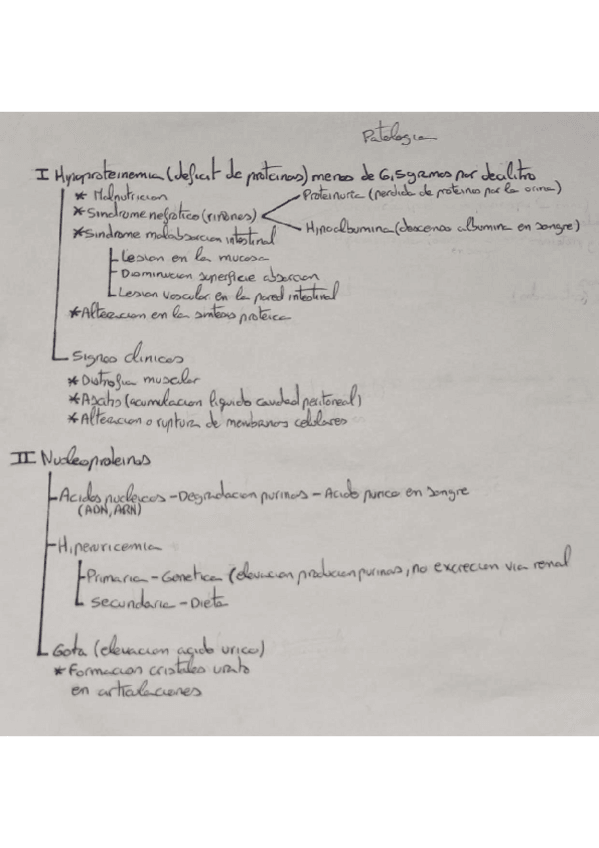 Patologia
I Hipoproteinemia (deficit de proteinas) menos de 6,5 gramos por decilitro
* Malnutricion
Proteinuria (perdida de proteinas por la orina)
* Sindrome nefrotico (riñones)
Hipoalbumina (descenso albumina en sangre)
* Sindrome malabsorcion intestinal
Lesion en la mucosa
Disminucion superficie absorcion
Lesion vascular en la pared intestinal
* Alteracion en la sintesis proteica
Signos clinicos
* Distrofia muscular
* Ascitis (acumulacion liquido cavidad peritoneal)
* Alteracion o ruptura de membranas celulares
II Nucleoproteinas
Acidos nucleicos - Degradacion purinas - Acido purico en sangre
(ADN, ARN)
Hiperuricemia
Primaria - Genetica (elevacion produccion purinas, no excrecion via renal
Secundaria - Dieta
Gota (elevacion acido urico)
* Formacion cristales urato
en articulaciones